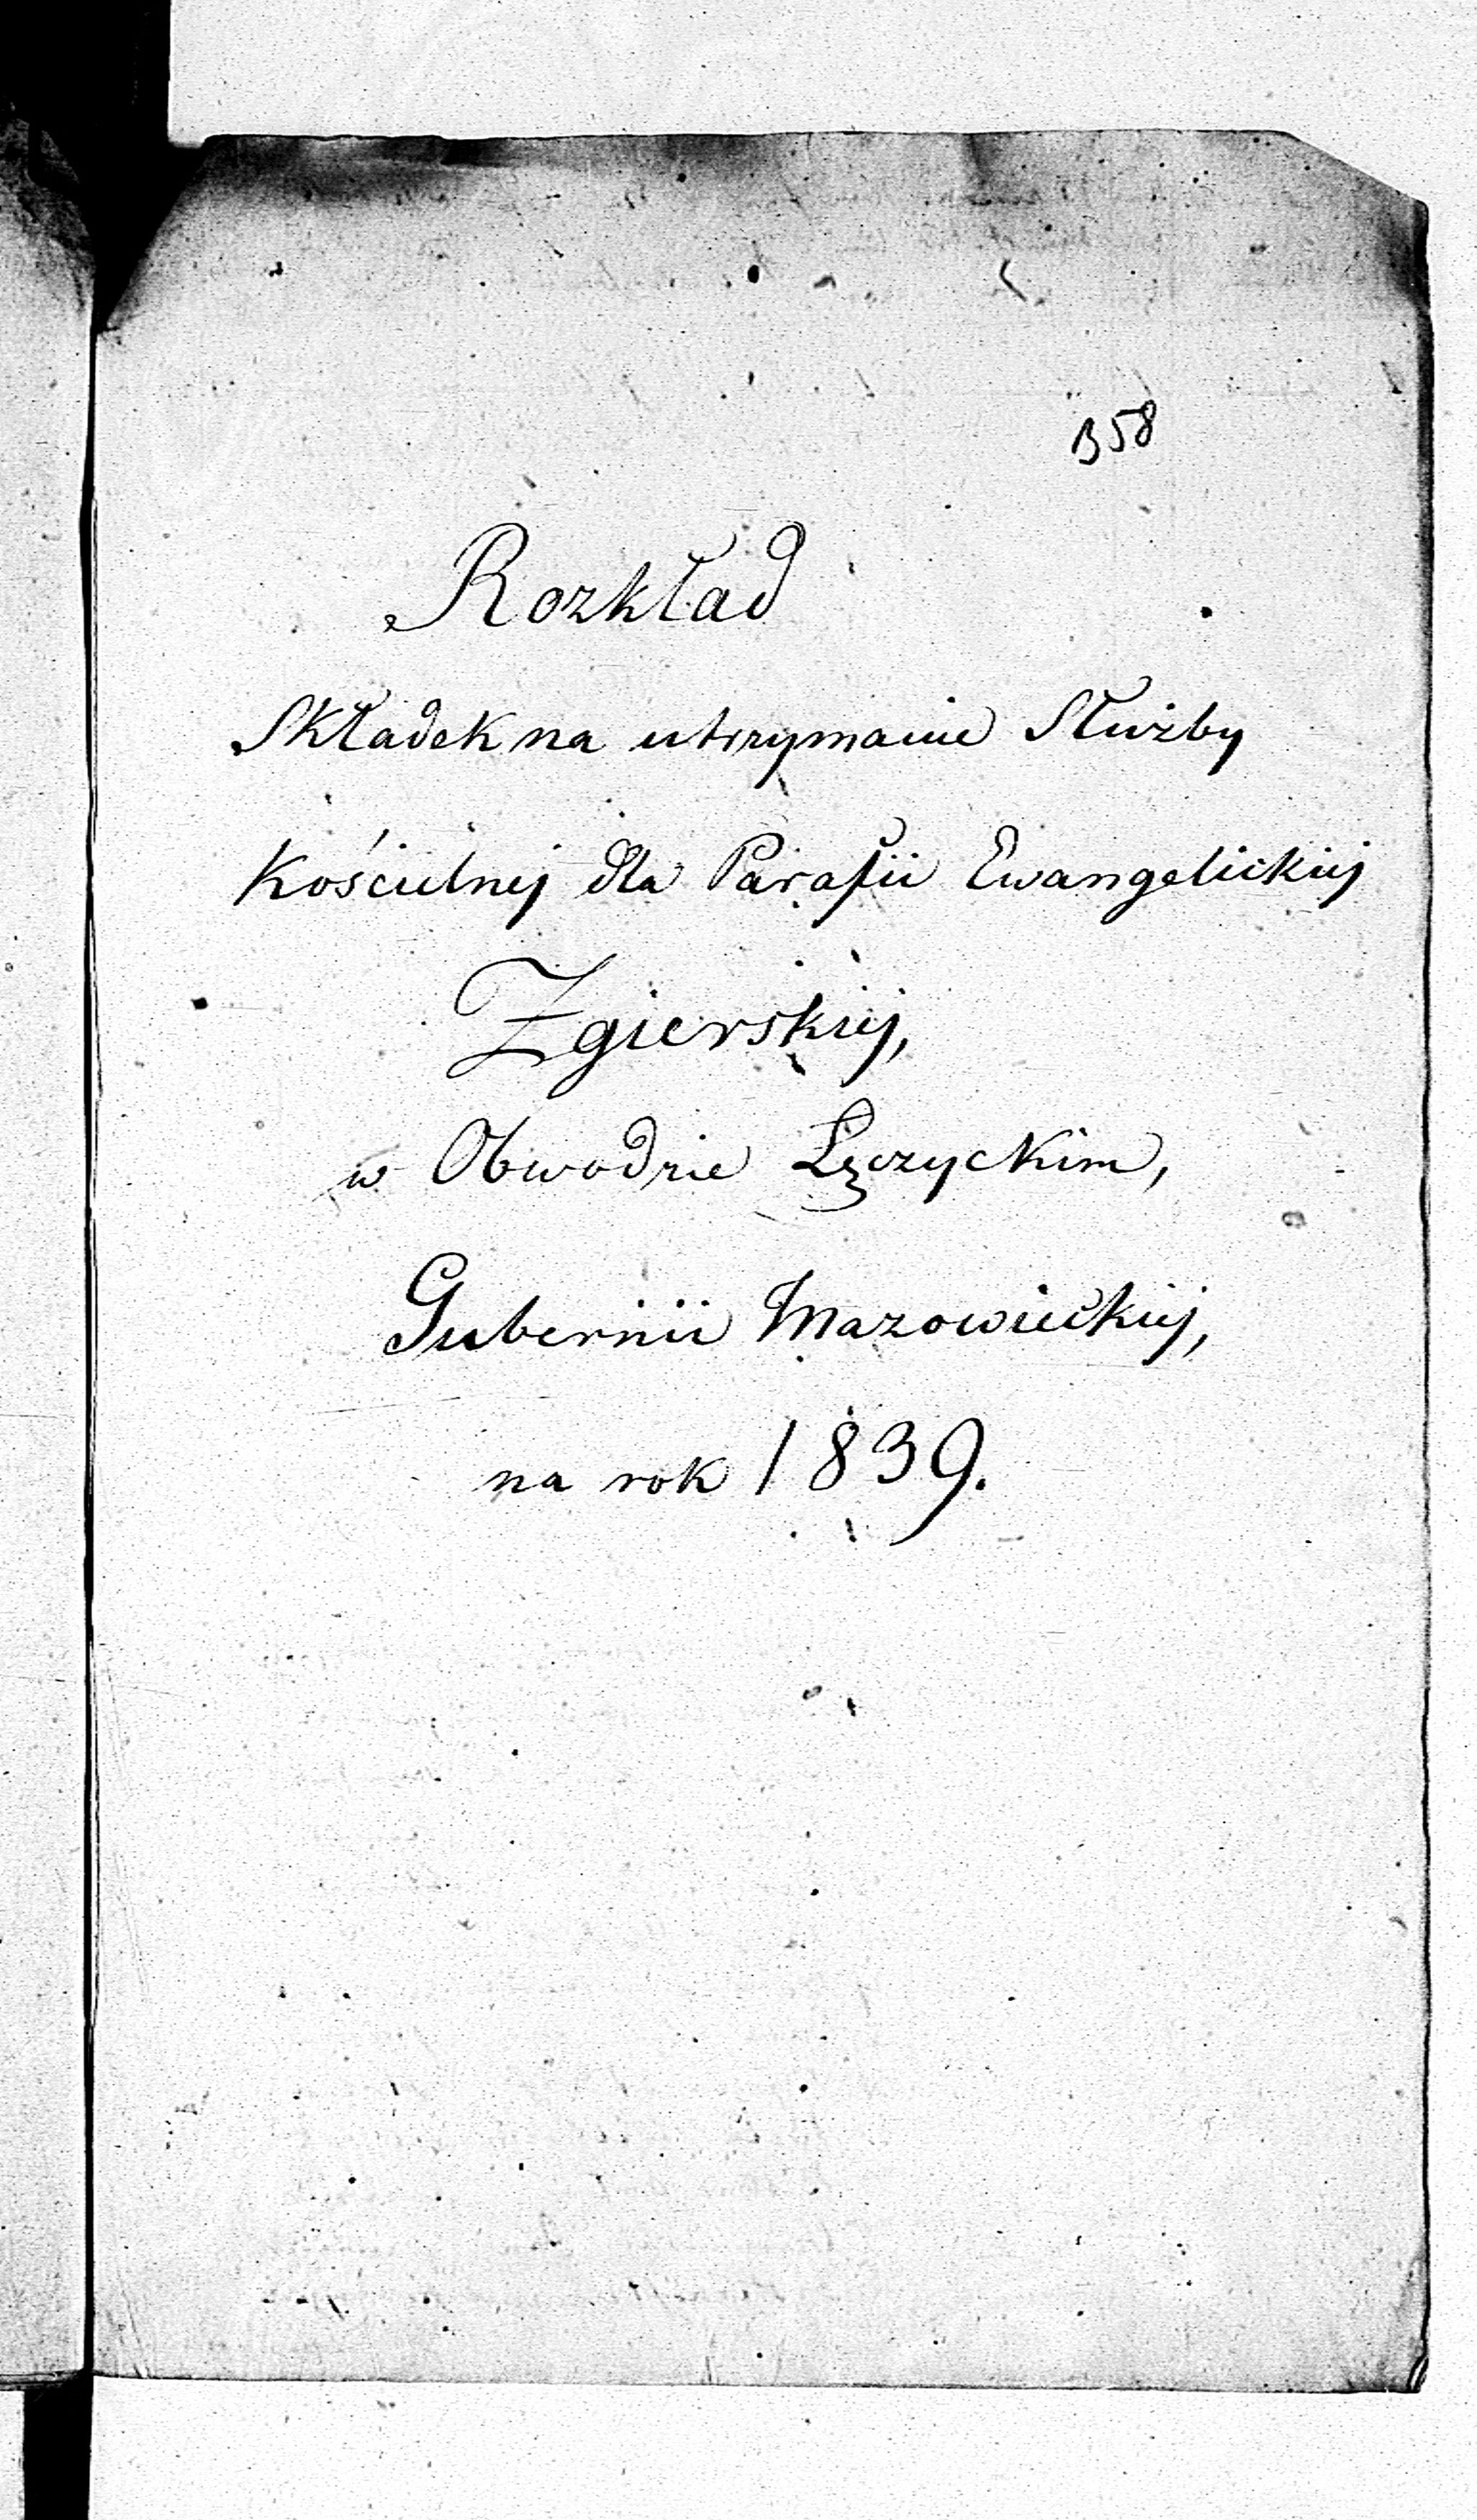 358
Rozkład
Składek na utrzymanie Służby
Kościelnej dla Parafii Ewangelickiej
Zgierskiej,
w Obwodzie Łęczyckim,
Gubernii Mazowieckiej,
na rok 1839.